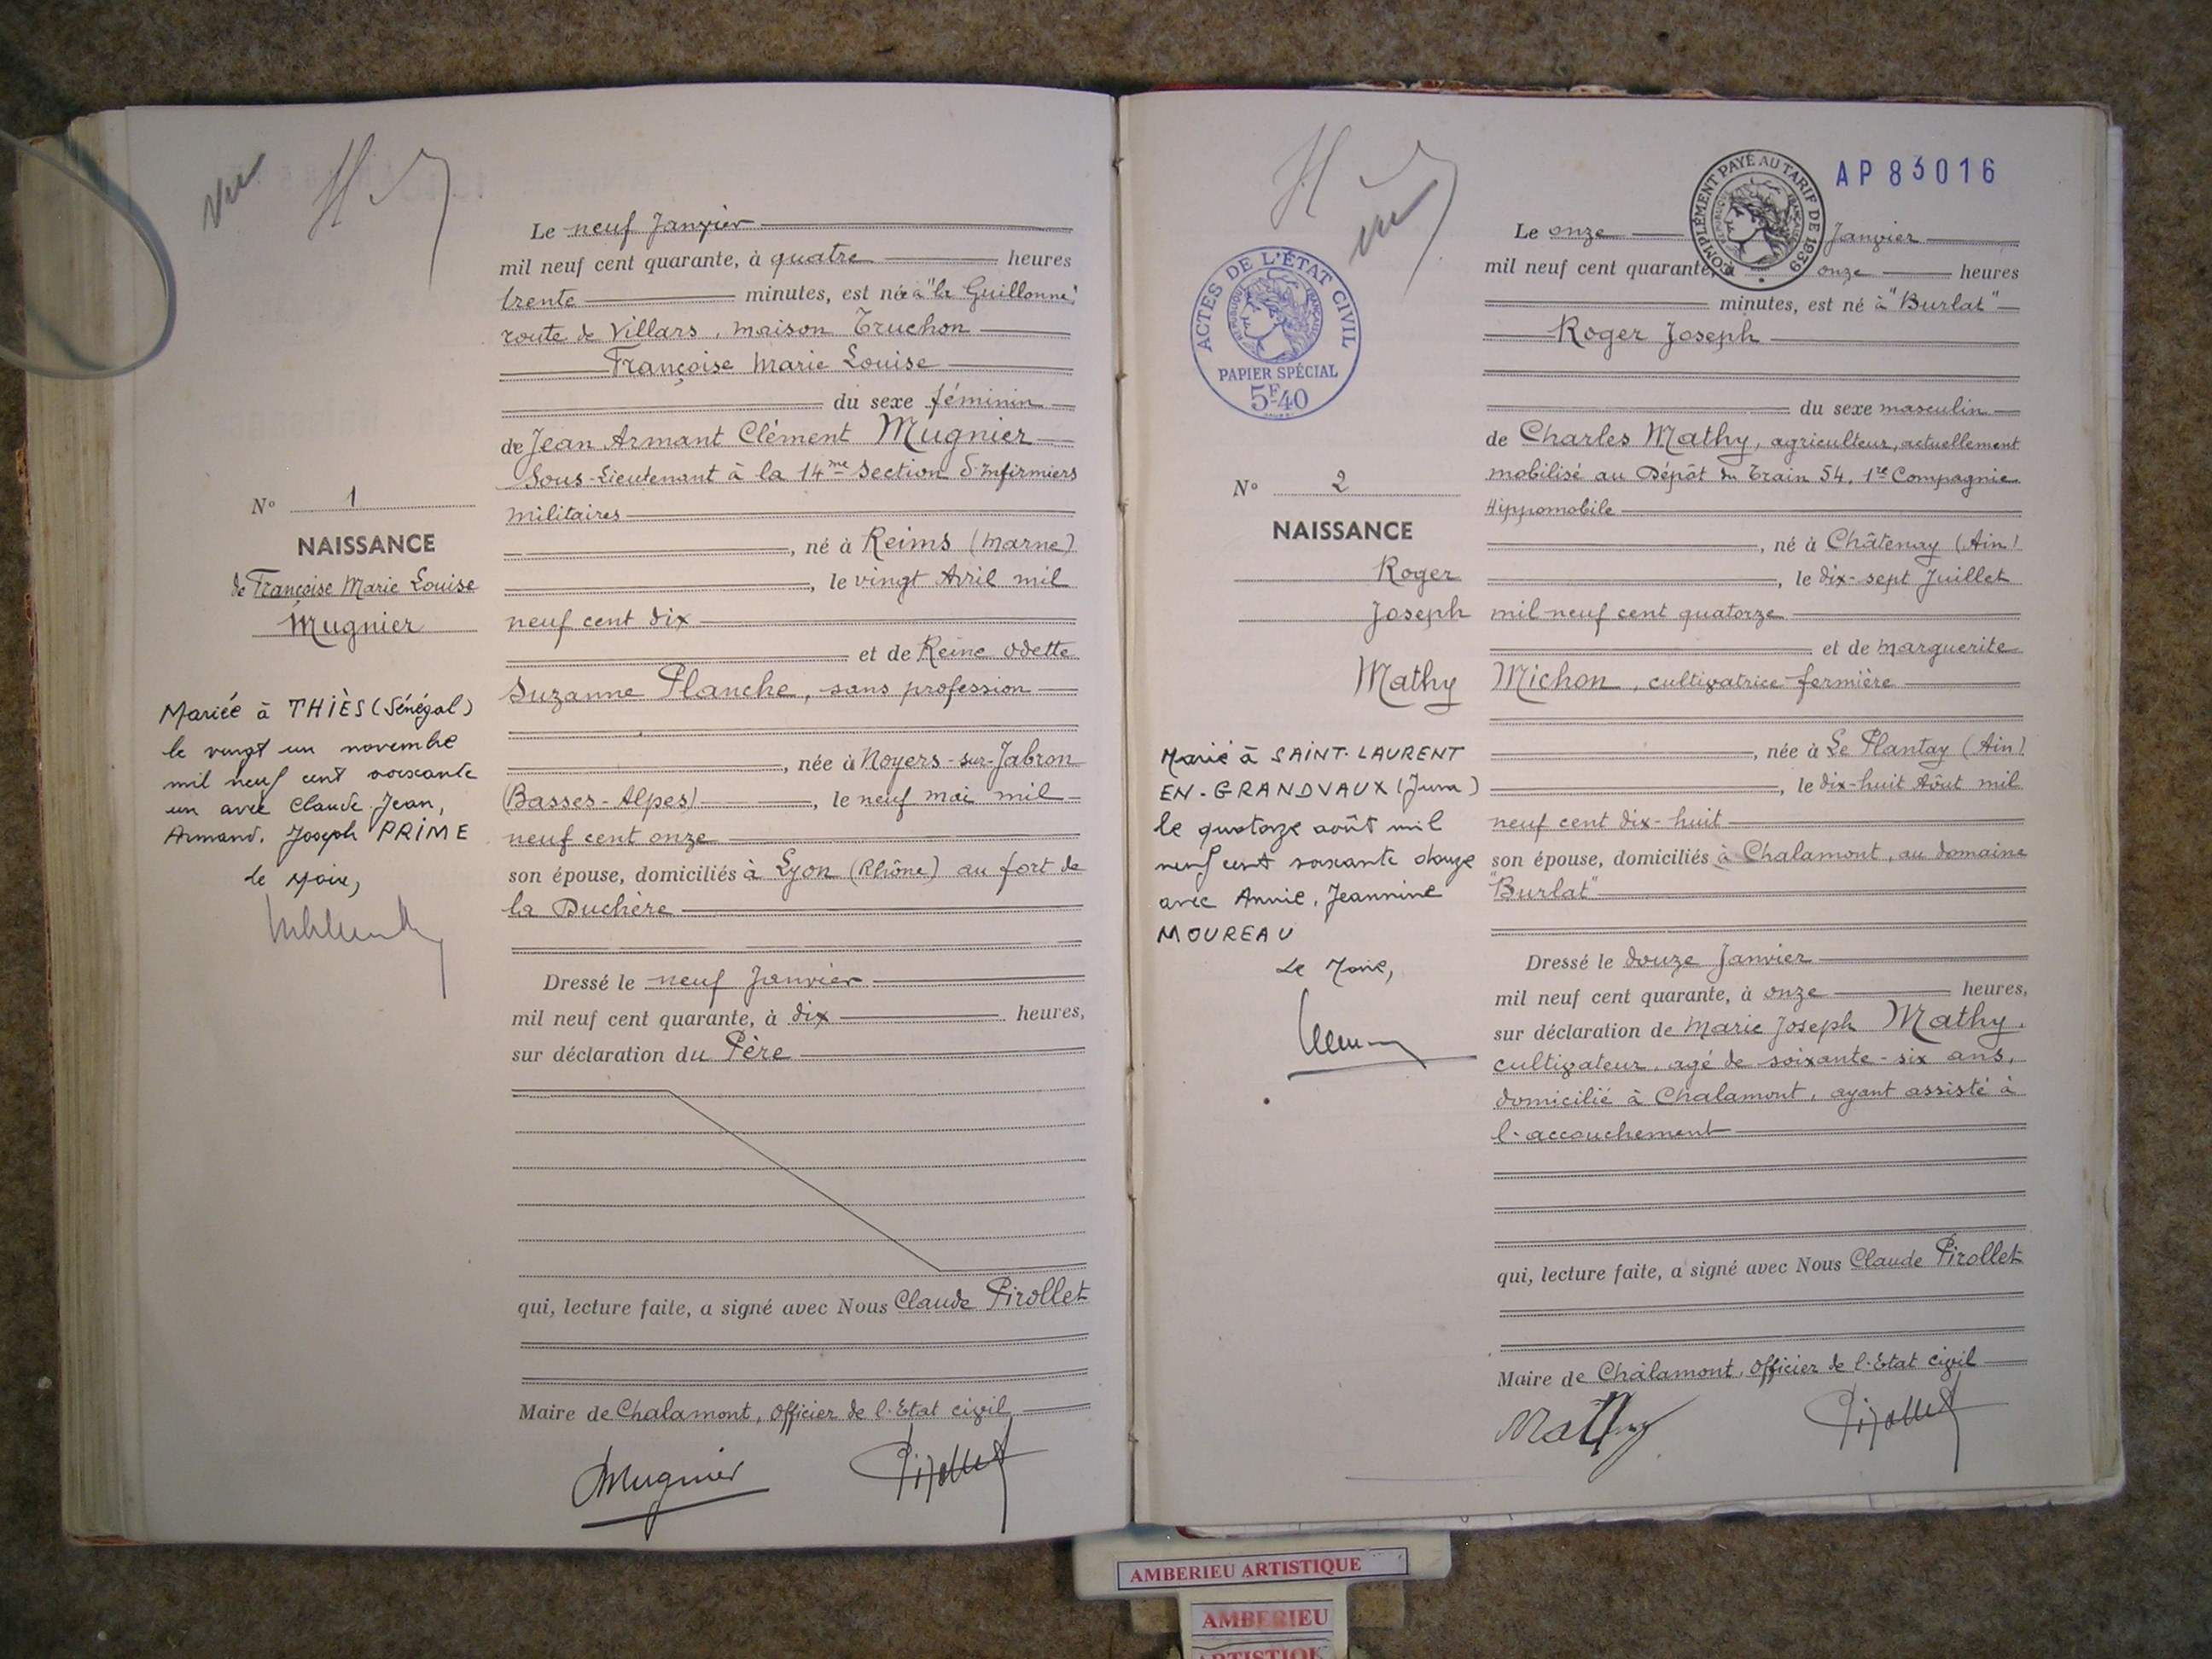 Vu
Le neuf Janvier
mil neuf cent quarante, à quatre heures
trente minutes, est née à "la Guillonne"
route de Villars, maison Truchon
Françoise Marie Louise
du sexe féminin
de Jean Armant Clément Mugnier
Sous-Lieutenant à la 14me Section d'Infirmiers
militaires
, né à Reims (Marne)
, le vingt Avril mil
neuf cent dix
et de Reine Odette
Suzanne Planche, sans profession
, née à Noyers-sur-Jabron
(Basses-Alpes) , le neuf mai mil
neuf cent onze
son épouse, domiciliés à Lyon (Rhône) au fort de
la Duchère
Dressé le neuf Janvier
mil neuf cent quarante, à dix heures,
sur déclaration du Père
qui, lecture faite, a signé avec Nous Claude Pirollet
Maire de Chalamont, Officier de l'Etat civil
Mugnier Pirollet
N° 1
NAISSANCE
de Françoise Marie Louise
Mugnier
Mariée à THIÈS (Sénégal)
le vingt un novembre
mil neuf cent soixante
un avec Claude Jean,
Armand, Joseph PRIME
Le Maire,
vu
ACTES DE L'ÉTAT CIVIL
RÉPUBLIQUE FRANÇAISE
PAPIER SPÉCIAL
5F40
COMPLÉMENT PAYÉ AU TARIF DE 1939
RÉPUBLIQUE FRANÇAISE
AP 83016
Le onze Janvier
mil neuf cent quarante, à onze heures
minutes, est né à "Burlat"
Roger Joseph
du sexe masculin
de Charles Mathy, agriculteur, actuellement
mobilisé au Dépôt du Train 54, 1re Compagnie
Hippomobile
, né à Châtenay (Ain)
, le dix-sept Juillet
mil neuf cent quatorze
et de Marguerite
Michon, cultivatrice-fermière
, née à Le Plantay (Ain)
, le dix-huit Août mil
neuf cent dix-huit
son épouse, domiciliés à Chalamont, au domaine
"Burlat"
Dressé le douze Janvier
mil neuf cent quarante, à onze heures,
sur déclaration de Marie Joseph Mathy,
cultivateur, agé de soixante-six ans,
domicilié à Chalamont, ayant assisté à
l'accouchement
qui, lecture faite, a signé avec Nous Claude Pirollet
Maire de Chalamont, Officier de l'Etat civil
Mathy Pirollet
N° 2
NAISSANCE
Roger
Joseph
Mathy
Marié à SAINT-LAURENT
EN-GRANDVAUX (Jura)
le quatorze août mil
neuf cent soixante douze
avec Annie, Jeannine
MOUREAU
Le Maire,
AMBERIEU ARTISTIQUE
AMBERIEU
ARTISTIQUE